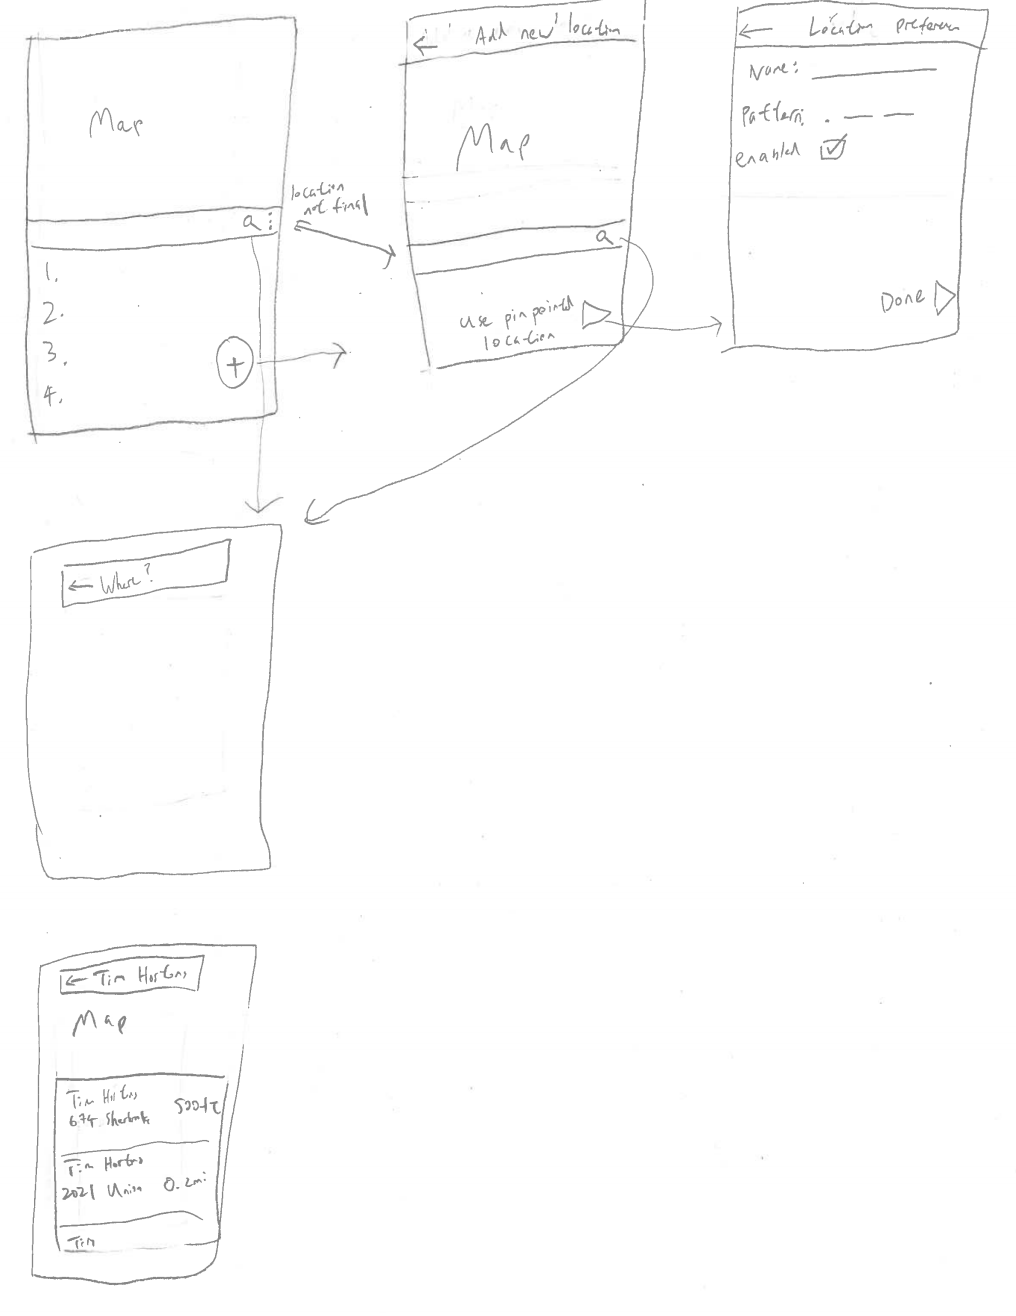 Map
1.
2.
3.
4.
+
location
not final
← Add new location
Map
Use pin pointed
location
← Location preferen
Name:
Pattern:
enabled
Done
← Where?
← Tim Hortons
Map
Tim Hortons
674 Sherbrooke 500ft
Tim Hortons
2021 Union 0.2mi
Tim